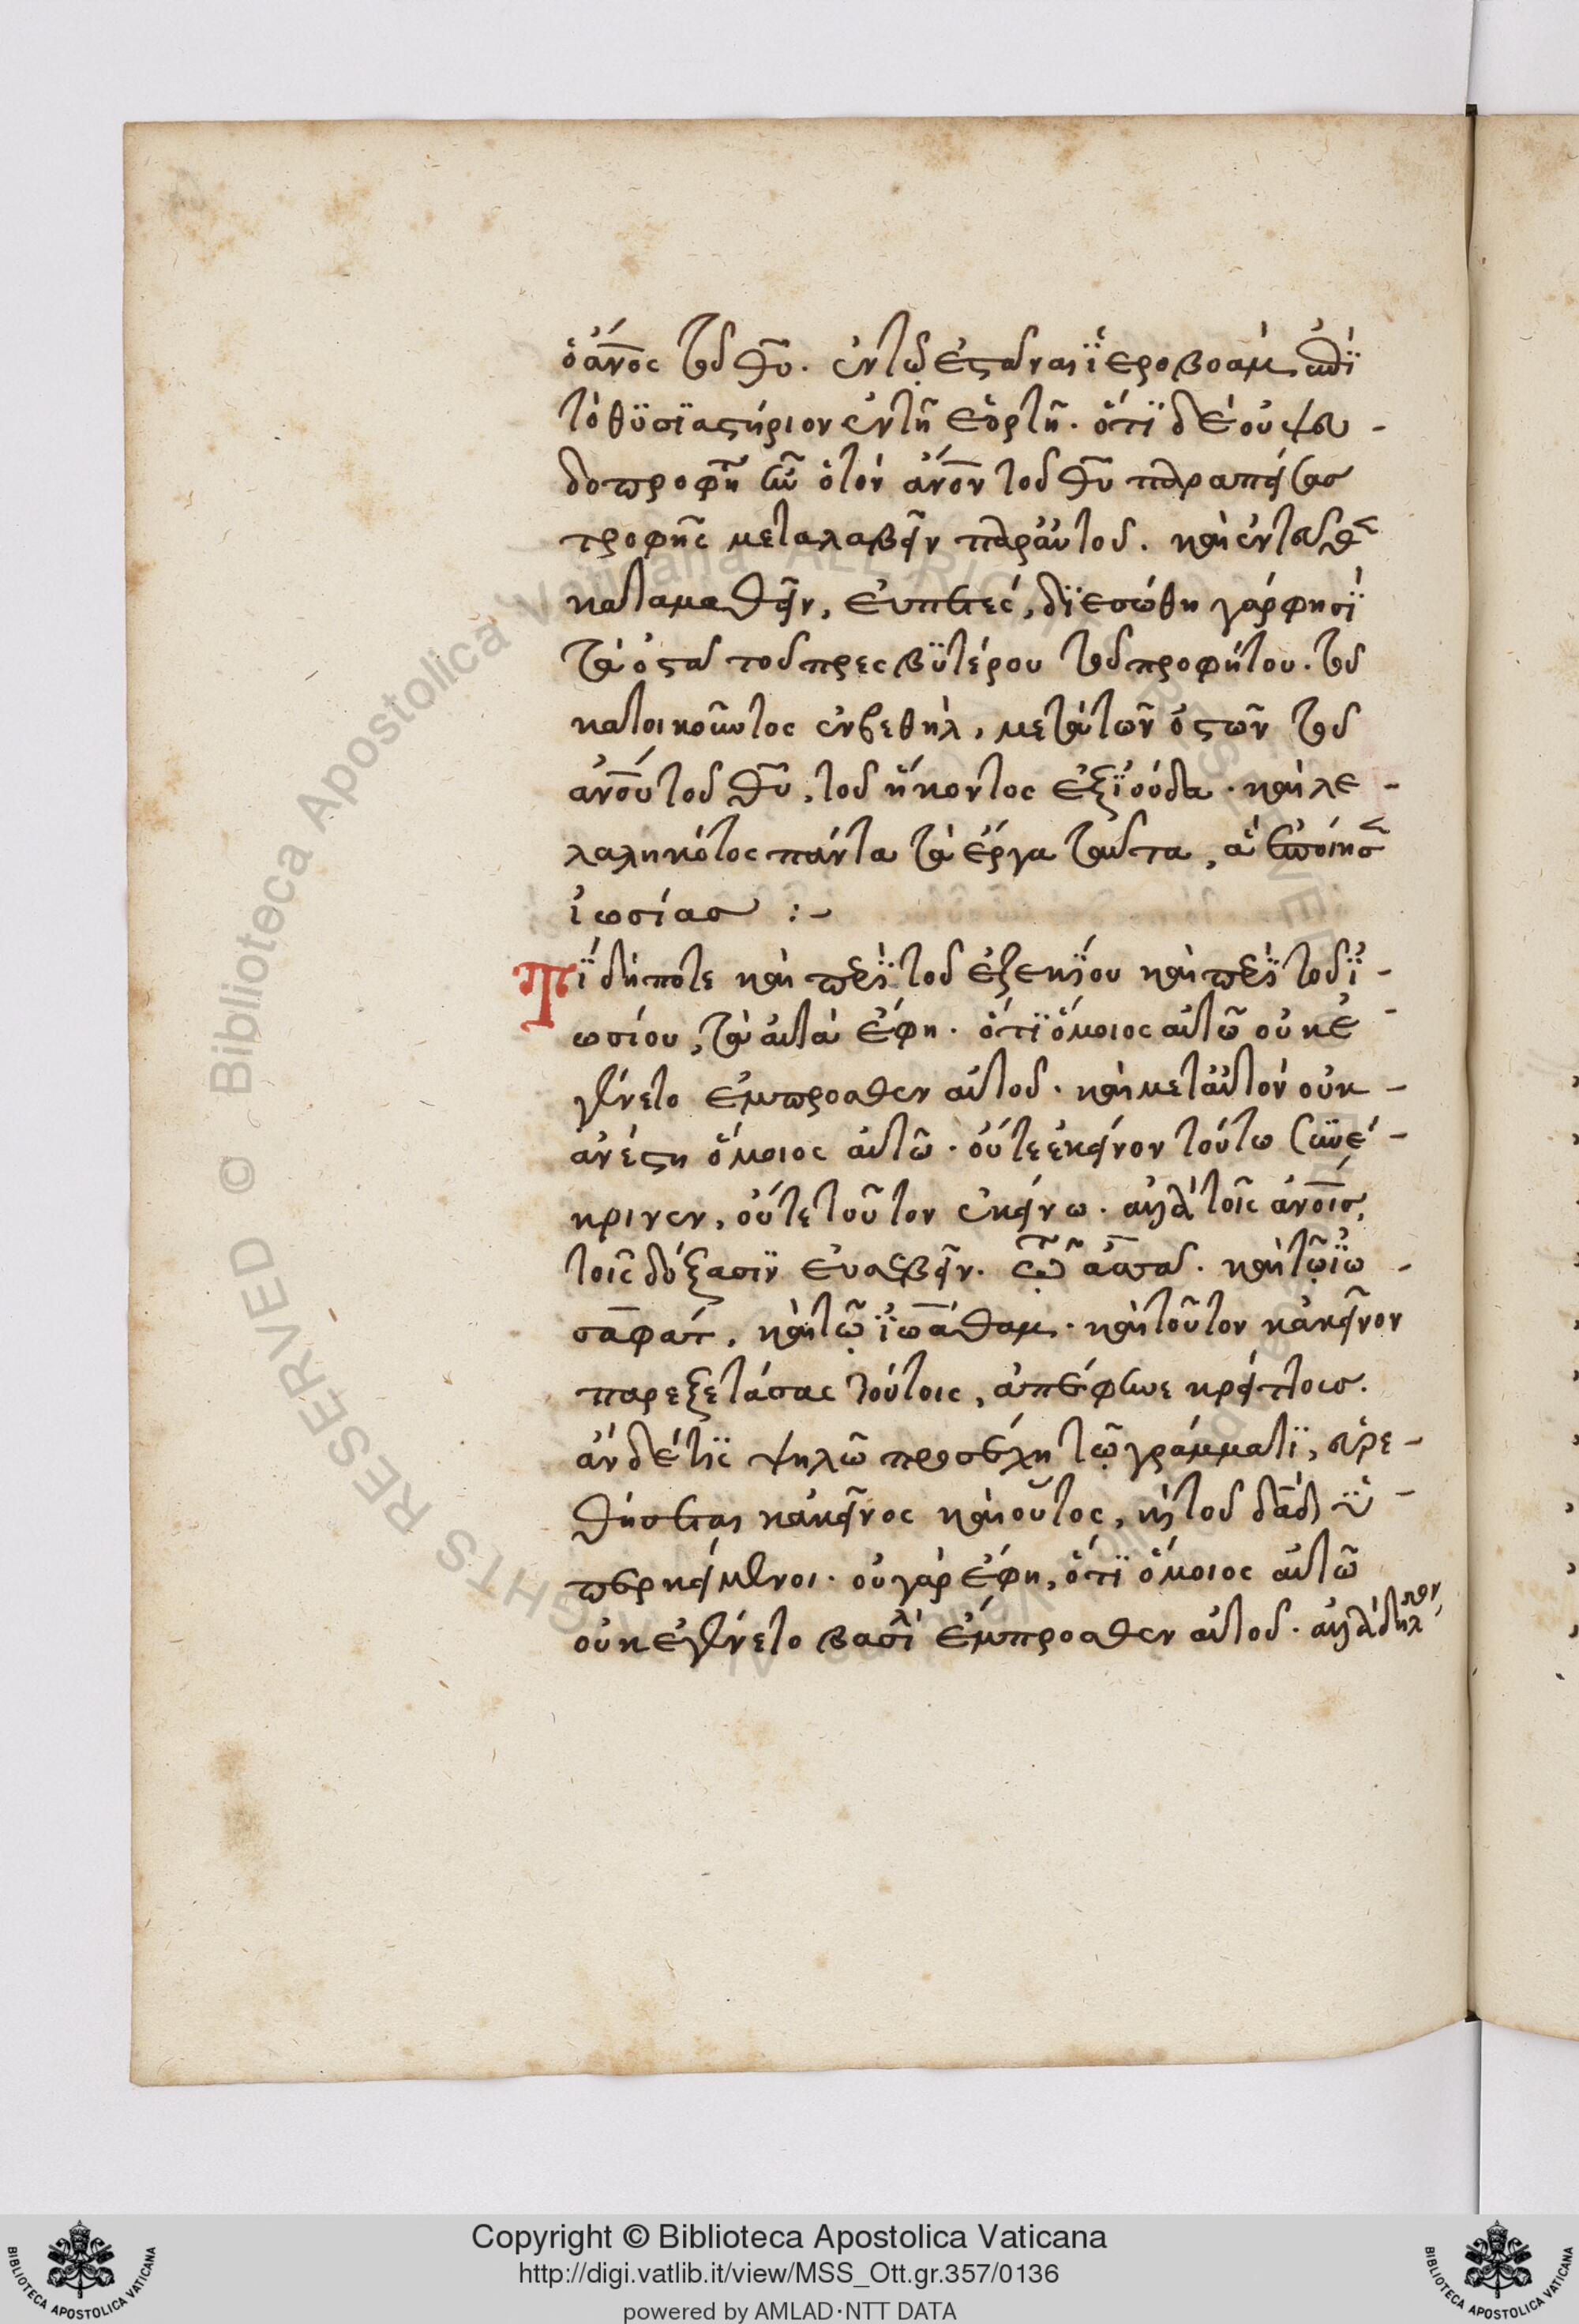 ὁ ἄνο̅ς τοῦ θυ̅. ἐν τῷ ἐστάναι ἱεροβοὰμ, ἐπὶ
τὸ θυσιαστήριον ἐν τῇ ἑορτῇ. ὅτι δὲ ὁ ψευ-
δοπροφή ὢν ὁ τὸν ἄνο̅ν τοῦ θυ̅ παραπείσας
τροφῆς μεταλαβεῖν παρ' αὐτοῦ. καὶ ἐντεῦθεν
καταμαθεῖν, εὐπετές, διεσώθη γάρ φησι
τὰ ὀστᾶ τοῦ πρεσβυτέρου τοῦ προφήτου. τοῦ
κατοικοῦντος ἐν βεθὴλ, μετὰ τῶν ὀστῶν τοῦ
ἀνο̅υ τοῦ θυ̅, τοῦ ἥκοντος ἐξ ἰούδα. καὶ λε-
λαληκότος πάντα τὰ ἔργα ταῦτα, ἃ ἐποίησεν
ἰωσίας :-
Τί δήποτε καὶ περὶ τοῦ ἐζεκίου καὶ περὶ τοῦ ἰ-
ωσίου, τὰ αὐτὰ ἔφη. ὅτι ὅμοιος αὐτῶ οὐκ ἐ-
γένετο ἔμπροσθεν αὐτοῦ. καὶ μετ' αὐτὸν οὐκ-
ἀνέστη ὅμοιος αὐτῶ. οὔτε ἐκεῖνον τούτω συνέ-
κρινεν, οὔτε τοῦτον ἐκείνω. ἀλλὰ τοῖς ἀνο̅ις,
τοῖς δόξασιν εὐσεβεῖν. τῷ ἀσᾶ. καὶ τῷ ἰω-
σαφάτ, καὶ τῷ ἰωάθαμ. καὶ τοῦτον κἀκεῖνον
παρεξετάσας τούτοις, ἀπέφηνε κρείττους.
ἂν δέ τις ψηλῶ προσέχη τῷ γράμματι, εὑρε-
θήσεται κἀκεῖνος καὶ οὗτος, καὶ τοῦ δα̅δ ὑ-
περκείμενοι. οὐ γὰρ ἔφη, ὅτι ὅμοιος αὐτῶ
οὐκ ἐγένετο βασιλ ἔμπροσθεν αὐτοῦ. ἀλλὰ δῆλ
Copyright © Biblioteca Apostolica Vaticana
http://digi.vatlib.it/view/MSS_Ott.gr.357/0136
powered by AMLAD·NTT DATA
BIBLIOTECA APOSTOLICA VATICANA
BIBLIOTECA APOSTOLICA VATICANA
© Biblioteca Apostolica Vaticana ALL RIGHTS RESERVED